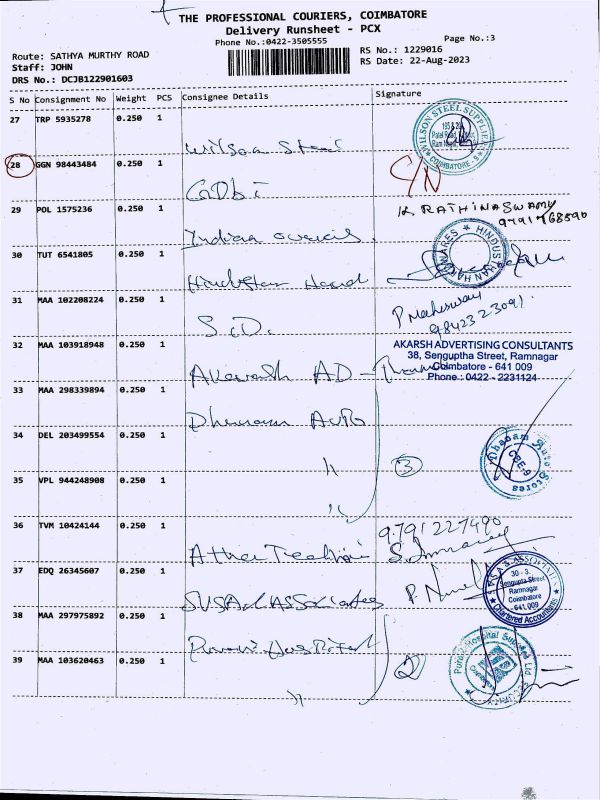 THE PROFESSIONAL COURIERS, COIMBATORE
Delivery Runsheet - PCX
Phone No.:0422-3505555
Page No.:3
Route: SATHYA MURTHY ROAD
RS No.: 1229016
Staff: JOHN
RS Date: 22-Aug-2023
DRS No.: DCJB122901603
S No Consignment No Weight PCS Consignee Details Signature
27 TRP 5935278 0.250 1
Wilson Steel
WILSON STEEL SUPPLIERS
COIMBATORE - 9
28 GGN 98443484 0.250 1
C/N
29 POL 1575236 0.250 1
K. RATHINASWAMY
Indian
30 TUT 6541805 0.250 1
Hindustan Hard
HINDUSTHAN HARDWARES
31 MAA 102208224 0.250 1
P Maheswary
9842323091.
S.D.
32 MAA 103918948 0.250 1
AKARSH ADVERTISING CONSULTANTS
38, Senguptha Street, Ramnagar
Coimbatore - 641 009
Phone : 0422 - 2231124
AD -
33 MAA 298339894 0.250 1
Auto
34 DEL 203499554 0.250 1
"
3
Dhanam Auto Stores
CBE-9
35 VPL 944248908 0.250 1
"
36 TVM 10424144 0.250 1
9791227490
37 EDQ 26345607 0.250 1
30 - 3,
Sengupta Street
Ramnagar
Coimbatore
- 641 009
Chartered Accountants
SUSA & ASSociates
38 MAA 297975892 0.250 1
Hospital
2
39 MAA 103620463 0.250 1
"